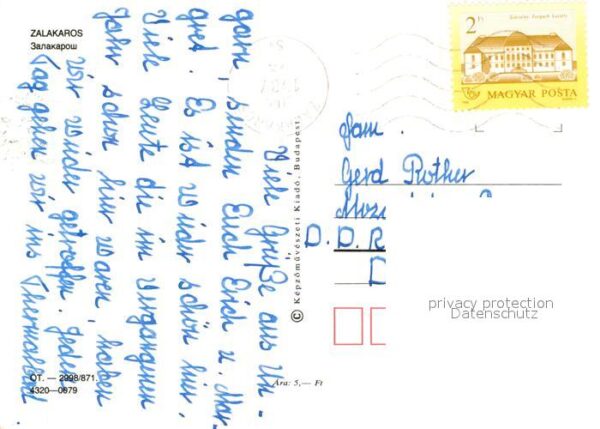 ZALAKAROS
Залакарош
Viele Grüße aus Un-
garn, senden Euch Erich u. Mar-
gret. Es ist wieder schön hier.
Viele Leute die im vergangenen
Jahr schon hier waren, haben
wir wieder getroffen. Jeden
Tag gehen wir ins Thermalbad.
OT. — 2998/871.
4320—0879
© Képzőművészeti Kiadó, Budapest.
Ára: 5,— Ft
2 Ft
MAGYAR POSTA
Fam.
Gerd Rother
D. D. R
privacy protection
Datenschutz